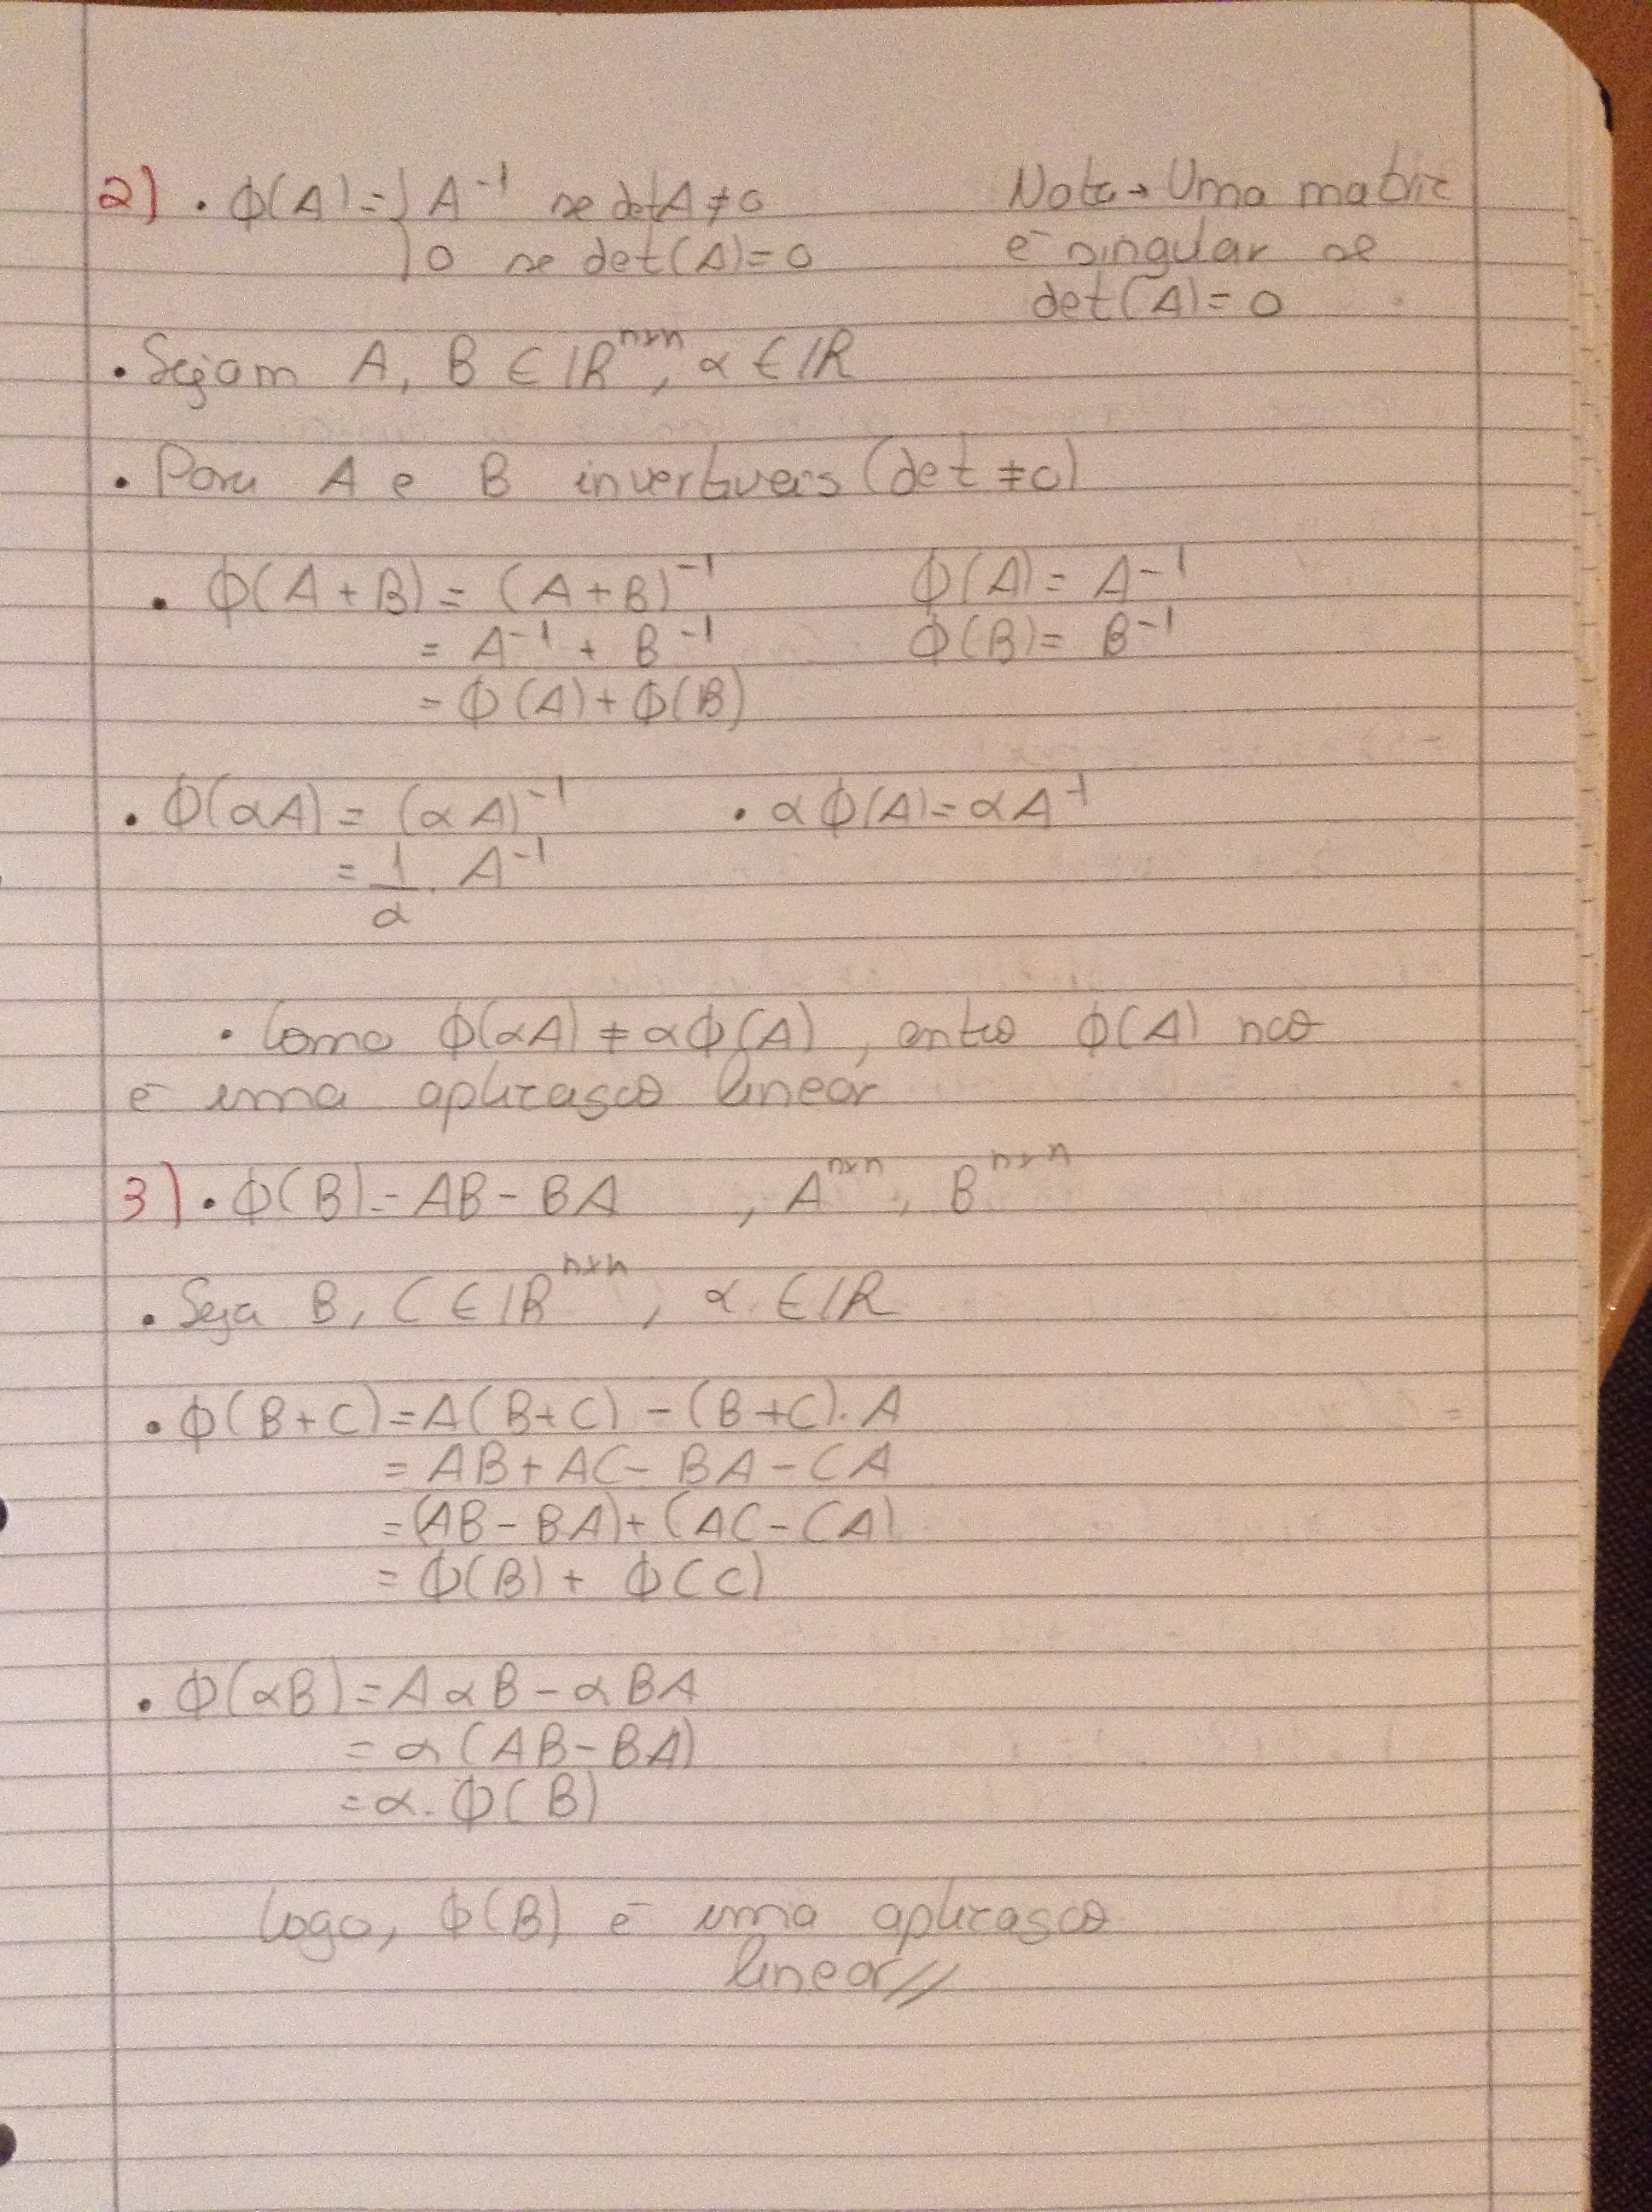 2) • ϕ(A) = { A⁻¹ se det A ≠ 0
0 se det(A) = 0
Nota → Uma matriz
é singular se
det(A) = 0
• Sejam A, B ∈ ℝⁿˣⁿ, α ∈ ℝ
• Para A e B invertíveis (det ≠ 0)
• ϕ(A + B) = (A + B)⁻¹
= A⁻¹ + B⁻¹
= ϕ(A) + ϕ(B)
ϕ(A) = A⁻¹
ϕ(B) = B⁻¹
• ϕ(αA) = (αA)⁻¹ • αϕ(A) = αA⁻¹
= 1/α . A⁻¹
• Como ϕ(αA) ≠ αϕ(A), então ϕ(A) não
é uma aplicação linear
3) • ϕ(B) = AB - BA , Aⁿˣⁿ, Bⁿˣⁿ
• Seja B, C ∈ ℝⁿˣⁿ, α ∈ ℝ
• ϕ(B+C) = A(B+C) - (B+C).A
= AB + AC - BA - CA
= (AB - BA) + (AC - CA)
= ϕ(B) + ϕ(C)
• ϕ(αB) = AαB - αBA
= α(AB - BA)
= α.ϕ(B)
Logo, ϕ(B) é uma aplicação
linear//